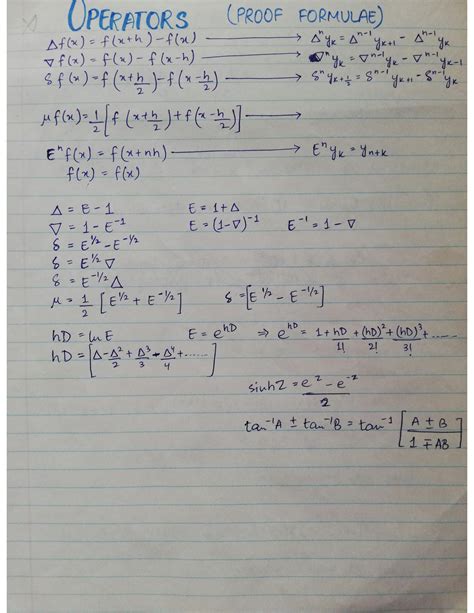 OPERATORS (PROOF FORMULAE)
Δf(x) = f(x+h) - f(x) → Δⁿyₖ = Δⁿ⁻¹yₖ₊₁ - Δⁿ⁻¹yₖ
∇f(x) = f(x) - f(x-h) → ∇ⁿyₖ = ∇ⁿ⁻¹yₖ - ∇ⁿ⁻¹yₖ₋₁
δf(x) = f(x+h/2) - f(x-h/2) → δⁿyₖ₊½ = δⁿ⁻¹yₖ₊₁ - δⁿ⁻¹yₖ
μf(x) = 1/2 [f(x+h/2) + f(x-h/2)] →
Eⁿf(x) = f(x+nh) → Eⁿyₖ = yₙ₊ₖ
f(x) = f(x)
Δ = E - 1 E = 1 + Δ
∇ = 1 - E⁻¹ E = (1-∇)⁻¹ E⁻¹ = 1 - ∇
δ = E^1/2 - E^-1/2
δ = E^1/2 ∇
δ = E^-1/2 Δ
μ = 1/2 [E^1/2 + E^-1/2] δ = [E^1/2 - E^-1/2]
hD = ln E E = e^hD ⇒ e^hD = 1 + hD/1! + (hD)²/2! + (hD)³/3! + ......
hD = [Δ - Δ²/2 + Δ³/3 - Δ⁴/4 + ......]
sinhZ = e^z - e^-z / 2
tan⁻¹A ± tan⁻¹B = tan⁻¹ [A ± B / 1 ∓ AB]